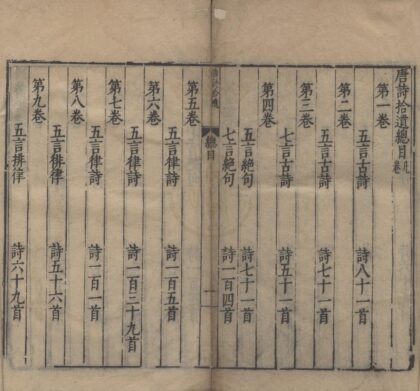 唐詩拾遺總目
第一卷
五言古詩 詩八十一首
第二卷
五言古詩 詩七十一首
第三卷
七言古詩 詩五十一首
第四卷
五言絶句 詩七十一首
七言絶句 詩一百四首
總目
第五卷
五言律詩 詩一百五首
第六卷
五言律詩 詩一百三十九首
第七卷
五言律詩 詩一百一首
第八卷
五言徘律 詩五十六首
第九卷
五言排律 詩六十九首